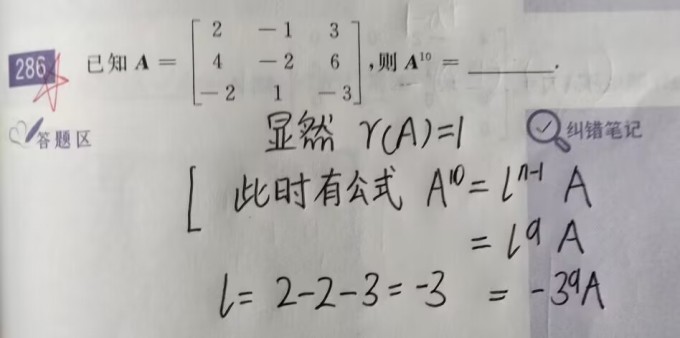 286 已知 A = [2 −1 3; 4 −2 6; −2 1 −3], 则 A¹⁰ = ______.
答题区
纠错笔记
显然 r(A)=1
[ 此时有公式 A¹⁰ = lⁿ⁻¹ A
= l⁹ A
l = 2-2-3 = -3 = -3⁹A